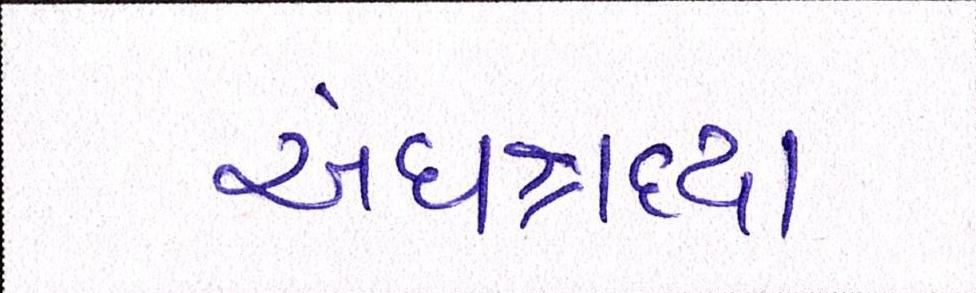 અંધશ્રદ્ધા